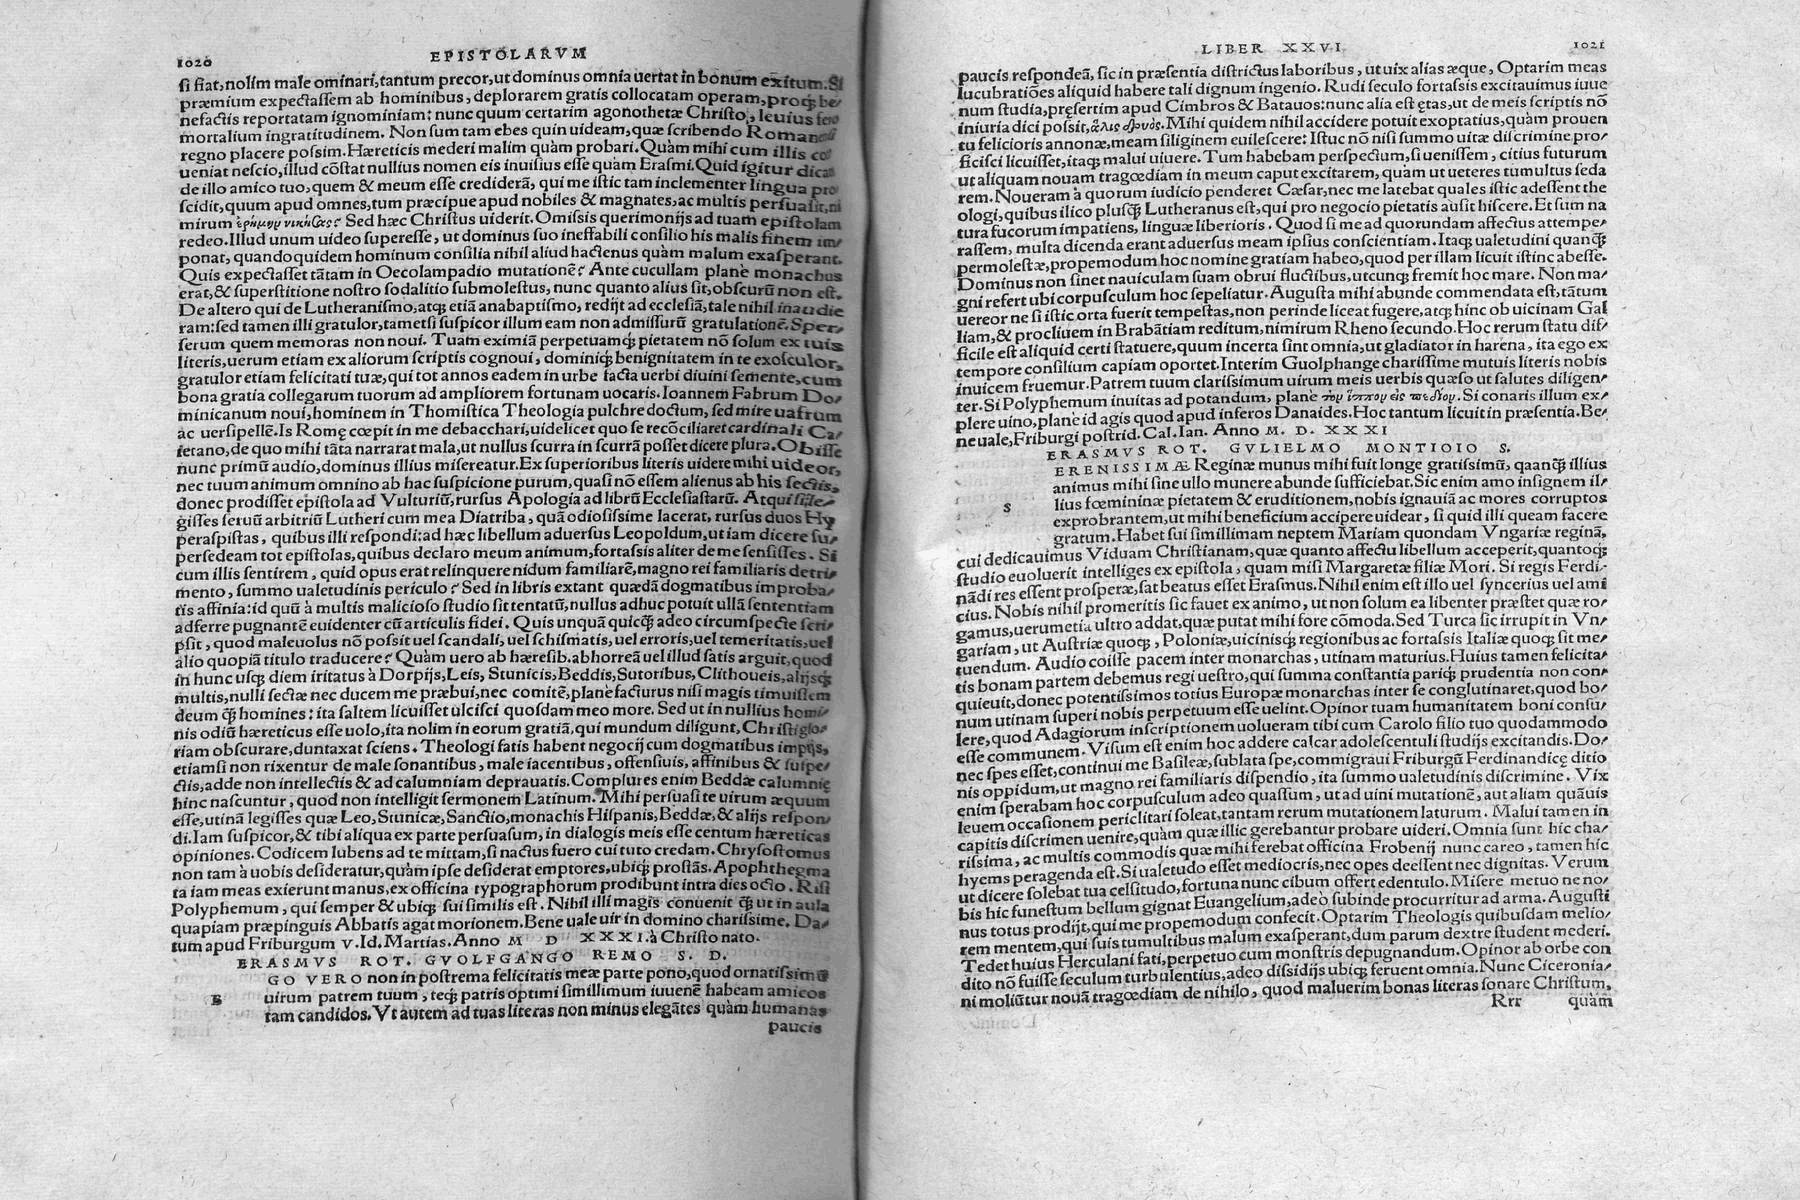 1020 EPISTOLARVM
si fiat, nolim male ominari, tantum precor, ut dominus omnia uertat in bonum exitum. Si
præmium expectassem ab hominibus, deplorarem gratis collocatam operam, proq; be/
nefactis reportatam ignominiam: nunc quum certarim agonothetæ Christo, leuius fero
mortalium ingratitudinem. Non sum tam ebes quin uideam, quæ scribendo Romano
regno placere possim. Hæreticis mederi malim quàm probari. Quàm mihi cum illis co
ueniat nescio, illud cõstat nullius nomen eis inuisius esse quàm Erasmi. Quid igitur dicam
de illo amico tuo, quem & meum esse crediderã, qui me istic tam inclementer lingua pro
scidit, quum apud omnes, tum præcipue apud nobiles & magnates, ac multis persuasit, ni
mirum ἐρήμην νικήσας? Sed hæc Christus uiderit. Omissis querimonijs ad tuam epistolam
redeo. Illud unum uideo superesse, ut dominus suo ineffabili consilio his malis finem im/
ponat, quandoquidem hominum consilia nihil aliud hactenus quàm malum exasperant.
Quis expectasset tãtam in Oecolampadio mutationẽ? Ante cucullam planè monachus
erat, & superstitione nostro sodalitio submolestus, nunc quanto alius sit, obscurũ non est.
De altero qui de Lutheranismo, atq; etiã anabaptismo, redijt ad ecclesiã, tale nihil inaudie
ram: sed tamen illi gratulor, tametsi suspicor illum eam non admissurũ gratulationẽ. Sper/
serum quem memoras non noui. Tuam eximiã perpetuamq; pietatem nõ solum ex tuis
literis, uerum etiam ex aliorum scriptis cognoui, dominiq; benignitatem in te exosculor,
gratulor etiam felicitati tuæ, qui tot annos eadem in urbe facta uerbi diuini semente, cum
bona gratia collegarum tuorum ad ampliorem fortunam uocaris. Ioannem Fabrum Do/
minicanum noui, hominem in Thomistica Theologia pulchre doctum, sed mire uafrum
ac uersipellẽ. Is Romę cœpit in me debacchari, uidelicet quo se recõciliaret cardinali Ca/
ietano, de quo mihi tãta narrarat mala, ut nullus scurra in scurrã posset dicere plura. Obisse
nunc primũ audio, dominus illius misereatur. Ex superioribus literis uidere mihi uideor,
nec tuum animum omnino ab hac suspicione purum, quasi nõ essem alienus ab his sectis,
donec prodisset epistola ad Vulturiũ, rursus Apologia ad librũ Ecclesiastarũ. Atqui si le/
gisses seruũ arbitriũ Lutheri cum mea Diatriba, quã odiosissime lacerat, rursus duos Hy
peraspistas, quibus illi respondi: ad hæc libellum aduersus Leopoldum, ut iam dicere su/
persedeam tot epistolas, quibus declaro meum animum, fortassis aliter de me sensisses. Si
cum illis sentirem, quid opus erat relinquere nidum familiarẽ, magno rei familiaris detri/
mento, summo ualetudinis periculo? Sed in libris extant quædã dogmatibus improba/
tis affinia: id quũ à multis malicioso studio sit tentatũ, nullus adhuc potuit ullã sententiam
adferre pugnantẽ euidenter cũ articulis fidei. Quis unquã quicq̃ adeo circumspecte scri/
psit, quod maleuolus nõ possit uel scandali, uel schismatis, uel erroris, uel temeritatis, uel
alio quopiã titulo traducere? Quàm uero ab hæresib. abhorreã uel illud satis arguit, quod
in hunc usq; diem iritatus à Dorpijs, Leis, Stunicis, Beddis, Sutoribus, Clithoueis, alijsq;
multis, nulli sectæ nec ducem me præbui, nec comitẽ, planè facturus nisi magis timuissem
deum q̃ homines: ita saltem licuisset ulcisci quosdam meo more. Sed ut in nullius homi/
nis odiũ hæreticus esse uolo, ita nolim in eorum gratiã, qui mundum diligunt, Christi glo/
riam obscurare, duntaxat sciens. Theologi satis habent negocij cum dogmatibus impijs,
etiamsi non rixentur de male sonantibus, male iacentibus, offensiuis, affinibus & suspe/
ctis, adde non intellectis & ad calumniam deprauatis. Complures enim Beddæ calumnię
hinc nascuntur, quod non intelligit sermonem Latinum. Mihi persuasi te uirum æquum
esse, utinã legisses quæ Leo, Stunicæ, Sanctio, monachis Hispanis, Beddæ, & alijs respon/
di. Iam suspicor, & tibi aliqua ex parte persuasum, in dialogis meis esse centum hæreticas
opiniones. Codicem lubens ad te mittam, si nactus fuero cui tuto credam. Chrysostomus
non tam à uobis desideratur, quàm ipse desiderat emptores, ubiq; prostãs. Apophthegma
ta iam meas exierunt manus, ex officina typographorum prodibunt intra dies octo. Risi
Polyphemum, qui semper & ubiq; sui similis est. Nihil illi magis conuenit q̃ ut in aula
quapiam præpinguis Abbatis agat morionem. Bene uale uir in domino charissime. Da/
tum apud Friburgum v. Id. Martias. Anno M D XXXI. à Christo nato.
ERASMVS ROT. GVOLFGANGO REMO S. D.
EGO VERO non in postrema felicitatis meæ parte pono, quod ornatissimũ
uirum patrem tuum, teq; patris optimi simillimum iuuenẽ habeam amicos
tam candidos. Vt autem ad tuas literas non minus elegãtes quàm humanas
paucis
LIBER XXVI. 1021
paucis respondeã, sic in præsentia districtus laboribus, ut uix alias æque, Optarim meas
lucubratiões aliquid habere tali dignum ingenio. Rudi seculo fortassis excitauimus iuue
num studia, pręsertim apud Cimbros & Batauos: nunc alia est ętas, ut de meis scriptis nõ
iniuria dici possit, ἅλις δρυός. Mihi quidem nihil accidere potuit exoptatius, quàm prouen
tu felicioris annonæ, meam siliginem euilescere: Istuc nõ nisi summo uitæ discrimine pro/
ficisci licuisset, itaq; malui uiuere. Tum habebam perspectum, si uenissem, citius futurum
ut aliquam nouam tragœdiam in meum caput excitarem, quàm ut ueteres tumultus seda
rem. Noueram à quorum iudicio penderet Cæsar, nec me latebat quales istic adessent the
ologi, quibus ilico plusq̃ Lutheranus est, qui pro negocio pietatis ausit hiscere. Et sum na
tura fucorum impatiens, linguæ liberioris. Quod si me ad quorundam affectus attempe/
rassem, multa dicenda erant aduersus meam ipsius conscientiam. Itaq; ualetudini quanq̃
permolestæ, propemodum hoc nomine gratiam habeo, quod per illam licuit istinc abesse.
Dominus non sinet nauiculam suam obrui fluctibus, utcunq; fremit hoc mare. Non ma/
gni refert ubi corpusculum hoc sepeliatur. Augusta mihi abunde commendata est, tãtum
uereor ne si istic orta fuerit tempestas, non perinde liceat fugere, atq; hinc ob uicinam Gal
liam, & procliuem in Brabãtiam reditum, nimirum Rheno secundo. Hoc rerum statu dif/
ficile est aliquid certi statuere, quum incerta sint omnia, ut gladiator in harena, ita ego ex
tempore consilium capiam oportet. Interim Guolphange charissime mutuis literis nobis
inuicem fruemur. Patrem tuum clarissimum uirum meis uerbis quæso ut salutes diligen/
ter. Si Polyphemum inuitas ad potandum, planè τὸν ἵππον εἰς πεδίον. Si conaris illum ex/
plere uino, planè id agis quod apud inferos Danaides. Hoc tantum licuit in præsentia. Be/
ne uale, Friburgi postrid. Cal. Ian. Anno M. D. XXXI
ERASMVS ROT. GVLIELMO MONTIOIO S.
SERENISSIMÆ Reginæ munus mihi fuit longe gratissimũ, quanq̃ illius
animus mihi sine ullo munere abunde sufficiebat. Sic enim amo insignem il/
lius fœmininæ pietatem & eruditionem, nobis ignauiã ac mores corruptos
exprobrantem, ut mihi beneficium accipere uidear, si quid illi queam facere
gratum. Habet sui simillimam neptem Mariam quondam Vngariæ reginã,
cui dedicauimus Viduam Christianam, quæ quanto affectu libellum acceperit, quantoq;
studio euoluerit intelliges ex epistola, quam misit Margaretæ filiæ Mori. Si regis Ferdi/
nãdi res essent prosperæ, sat beatus esset Erasmus. Nihil enim est illo uel syncerius uel ami
cius. Nobis nihil promeritis sic fauet ex animo, ut non solum ea libenter præstet quæ ro/
gamus, uerumetiã ultro addat, quæ putat mihi fore cõmoda. Sed Turca sic irrupit in Vn/
gariam, ut Austriæ quoq;, Poloniæ, uicinisq; regionibus ac fortassis Italiæ quoq; sit me/
tuendum. Audio coisse pacem inter monarchas, utinam maturius. Huius tamen felicita/
tis bonam partem debemus regi uestro, qui summa constantia pariq; prudentia non con/
quieuit, donec potentissimos totius Europæ monarchas inter se conglutinaret, quod bo/
num utinam superi nobis perpetuum esse uelint. Opinor tuam humanitatem boni consu/
lere, quod Adagiorum inscriptionem uolueram tibi cum Carolo filio tuo quodammodo
esse communem. Visum est enim hoc addere calcar adolescentuli studijs excitandis. Do/
nec spes esset, continui me Basileæ, sublata spe, commigraui Friburgũ Ferdinandicę ditio
nis oppidum, ut magno rei familiaris dispendio, ita summo ualetudinis discrimine. Vix
enim sperabam hoc corpusculum adeo quassum, ut ad uini mutationẽ, aut aliam quãuis
leuem occasionem periclitari soleat, tantam rerum mutationem laturum. Malui tamen in
capitis discrimen uenire, quàm quæ illic gerebantur probare uideri. Omnia sunt hic cha/
rissima, ac multis commodis quæ mihi ferebat officina Frobenij nunc careo, tamen hic
hyems peragenda est. Si ualetudo esset mediocris, nec opes deessent nec dignitas. Verum
ut dicere solebat tua celsitudo, fortuna nunc cibum offert edentulo. Misere metuo ne no/
bis hic funestum bellum gignat Euangelium, adeo subinde procurritur ad arma. Augusti
nus totus prodijt, qui me propemodum confecit. Optarim Theologis quibusdam melio/
rem mentem, qui suis tumultibus malum exasperant, dum parum dextre student mederi.
Tedet huius Herculani fati, perpetuo cum monstris depugnandum. Opinor ab orbe con
dito nõ fuisse seculum turbulentius, adeo dissidijs ubiq; feruent omnia. Nunc Ciceronia/
ni moliũtur nouã tragœdiam de nihilo, quod maluerim bonas literas sonare Christum,
Rrr quàm